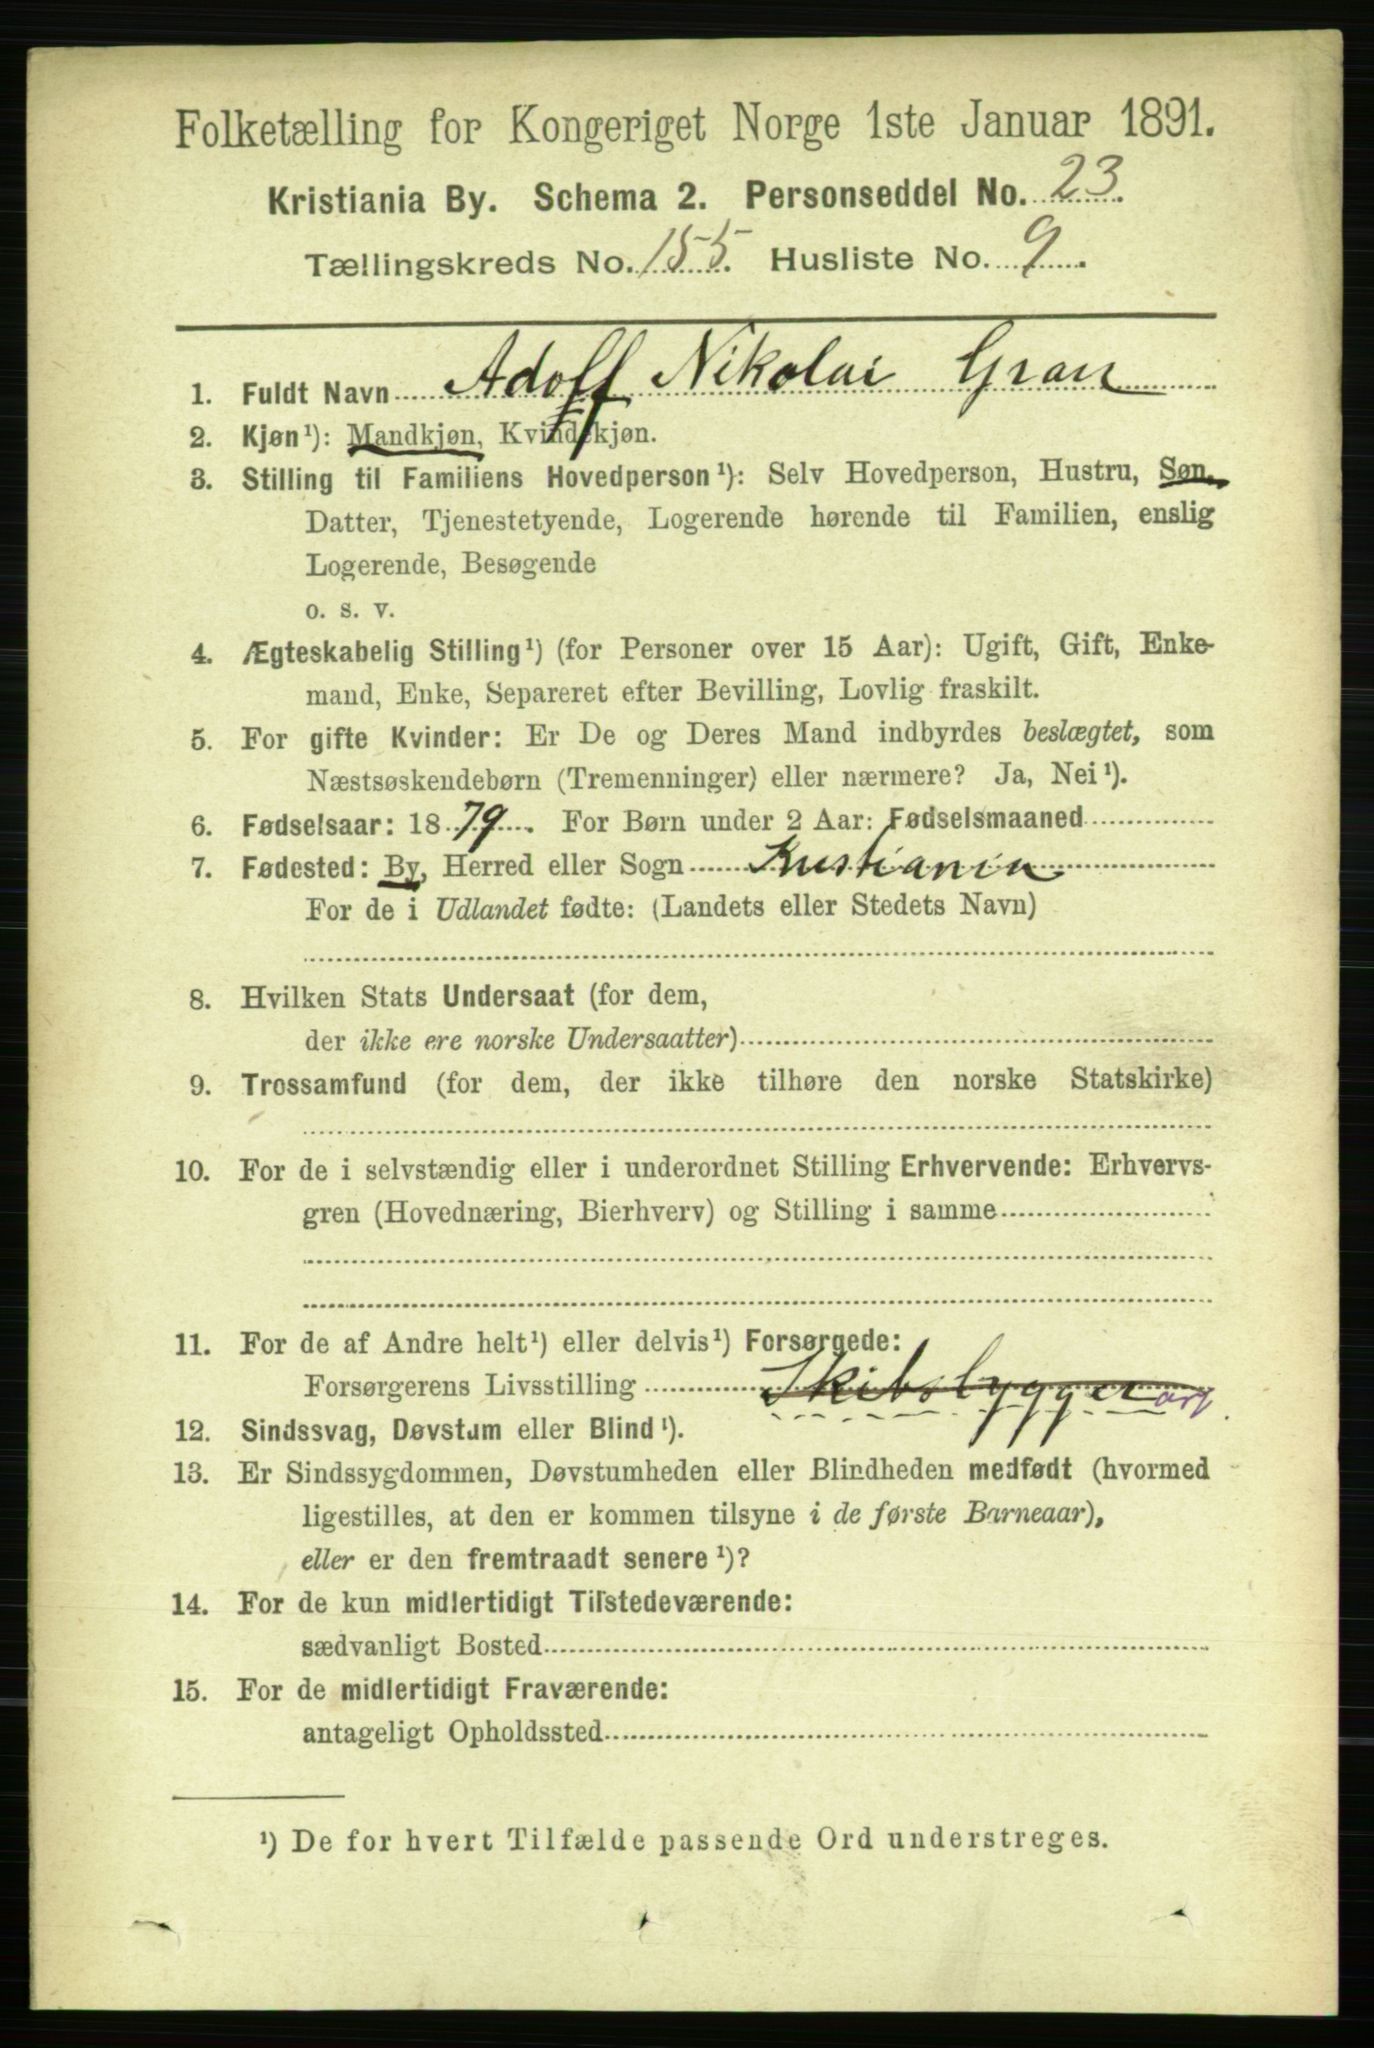 Folketælling for Kongeriget Norge 1ste Januar 1891.
Kristiania By. Schema 2. Personseddel No. 23.
Tællingskreds No. 155. Husliste No. 9.
1. Fuldt Navn Adolf Nikolai Gran
2. Kjøn¹): Mandkjøn, Kvindekjøn.
3. Stilling til Familiens Hovedperson¹): Selv Hovedperson, Hustru, Søn,
Datter, Tjenestetyende, Logerende hørende til Familien, enslig
Logerende, Besøgende
o. s. v.
4. Ægteskabelig Stilling¹) (for Personer over 15 Aar): Ugift, Gift, Enke-
mand, Enke, Separeret efter Bevilling, Lovlig fraskilt.
5. For gifte Kvinder: Er De og Deres Mand indbyrdes beslægtet, som
Næstsøskendebørn (Tremenninger) eller nærmere? Ja, Nei¹).
6. Fødselsaar: 1879. For Børn under 2 Aar: Fødselsmaaned
7. Fødested: By, Herred eller Sogn Kristiania
For de i Udlandet fødte: (Landets eller Stedets Navn)
8. Hvilken Stats Undersaat (for dem,
der ikke ere norske Undersaatter)
9. Trossamfund (for dem, der ikke tilhøre den norske Statskirke)
10. For de i selvstændig eller i underordnet Stilling Erhvervende: Erhvervs-
gren (Hovednæring, Bierhverv) og Stilling i samme
11. For de af Andre helt¹) eller delvis¹) Forsørgede:
Forsørgerens Livsstilling Skibsbygger arb
12. Sindssvag, Døvstum eller Blind¹).
13. Er Sindssygdommen, Døvstumheden eller Blindheden medfødt (hvormed
ligestilles, at den er kommen tilsyne i de første Barneaar),
eller er den fremtraadt senere¹)?
14. For de kun midlertidigt Tilstedeværende:
sædvanligt Bosted
15. For de midlertidigt Fraværende:
antageligt Opholdssted
¹) De for hvert Tilfælde passende Ord understreges.